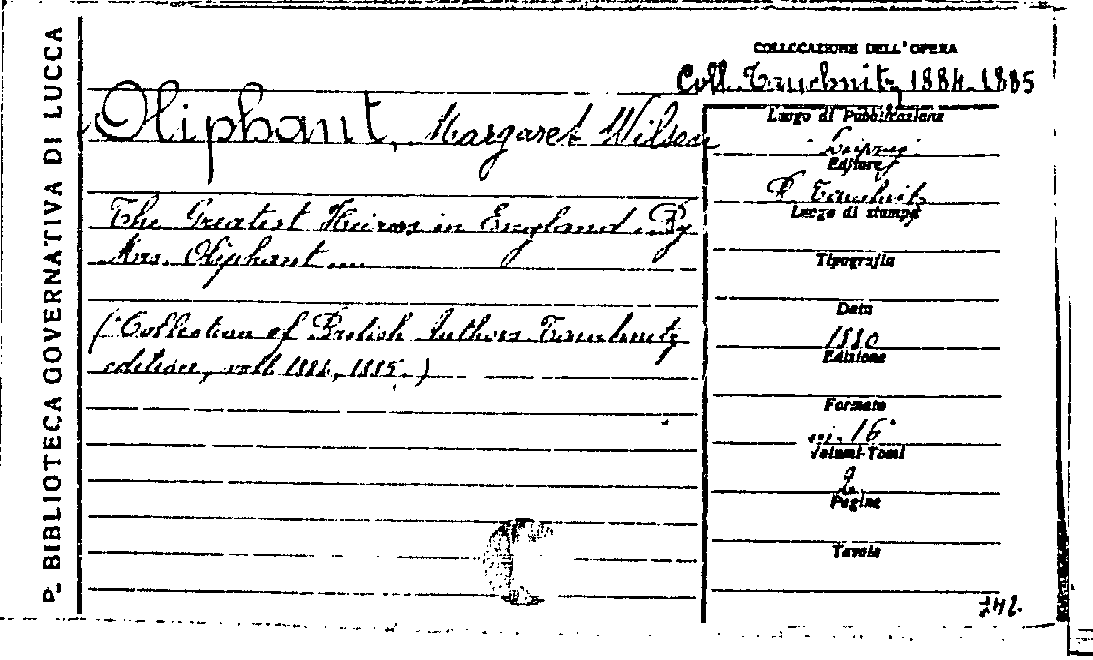 P. BIBLIOTECA GOVERNATIVA DI LUCCA
COLLOCAZIONE DELL'OPERA
Coll. Tauchnitz 1884-1885
Oliphant, Margaret Wilson
The Greatest Heiress in England. By
Mrs. Oliphant ...
("Collection of British Authors Tauchnitz
edition, voll. 1884, 1885.)
Luogo di Pubblicazione
Leipzig
Editore
B. Tauchnitz
Luogo di stampa
Tipografia
Data
1880
Edizione
Formato
in 16°
Volumi-Tomi
2
Pagine
Tavole